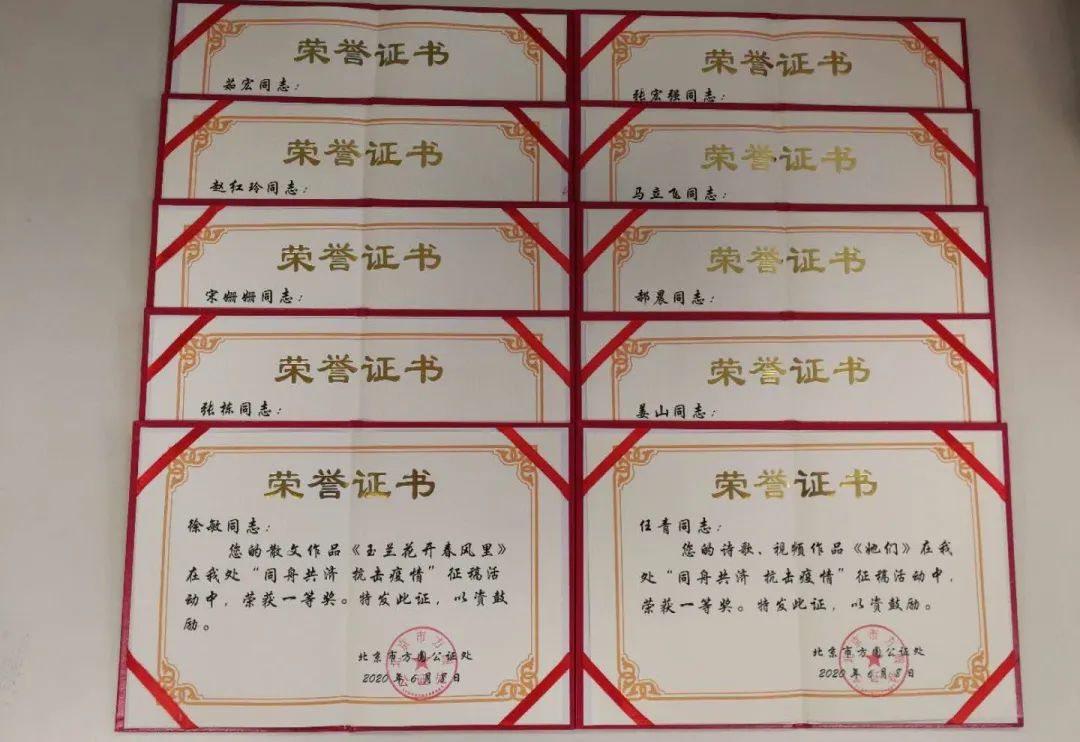 荣誉证书
茹宏同志：
荣誉证书
张宏强同志：
荣誉证书
赵红玲同志：
荣誉证书
马立飞同志：
荣誉证书
宋姗姗同志：
荣誉证书
郝晨同志：
荣誉证书
张栋同志：
荣誉证书
姜山同志：
荣誉证书
徐敏同志：
您的散文作品《玉兰花开春风里》
在我处“同舟共济 抗击疫情”征稿活
动中，荣获一等奖。特发此证，以资鼓
励。
北京市方圆公证处
2020年6月8日
荣誉证书
任青同志：
您的诗歌、视频作品《她们》在我
处“同舟共济 抗击疫情”征稿活动中，
荣获一等奖。特发此证，以资鼓励。
北京市方圆公证处
2020年6月8日